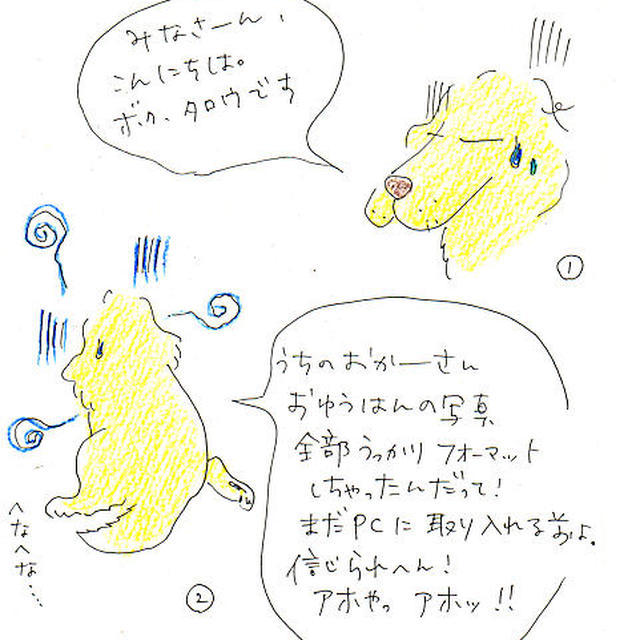 みなさーん、
こんにちは。
ボク、タロウです
①
うちのおかーさん
おゆうはんの写真
全部うっかりフォーマット
しちゃったんだって!
まだPCに取り入れる前よ。
信じられへん!
アホやっ アホッ!!
へなへな…
②